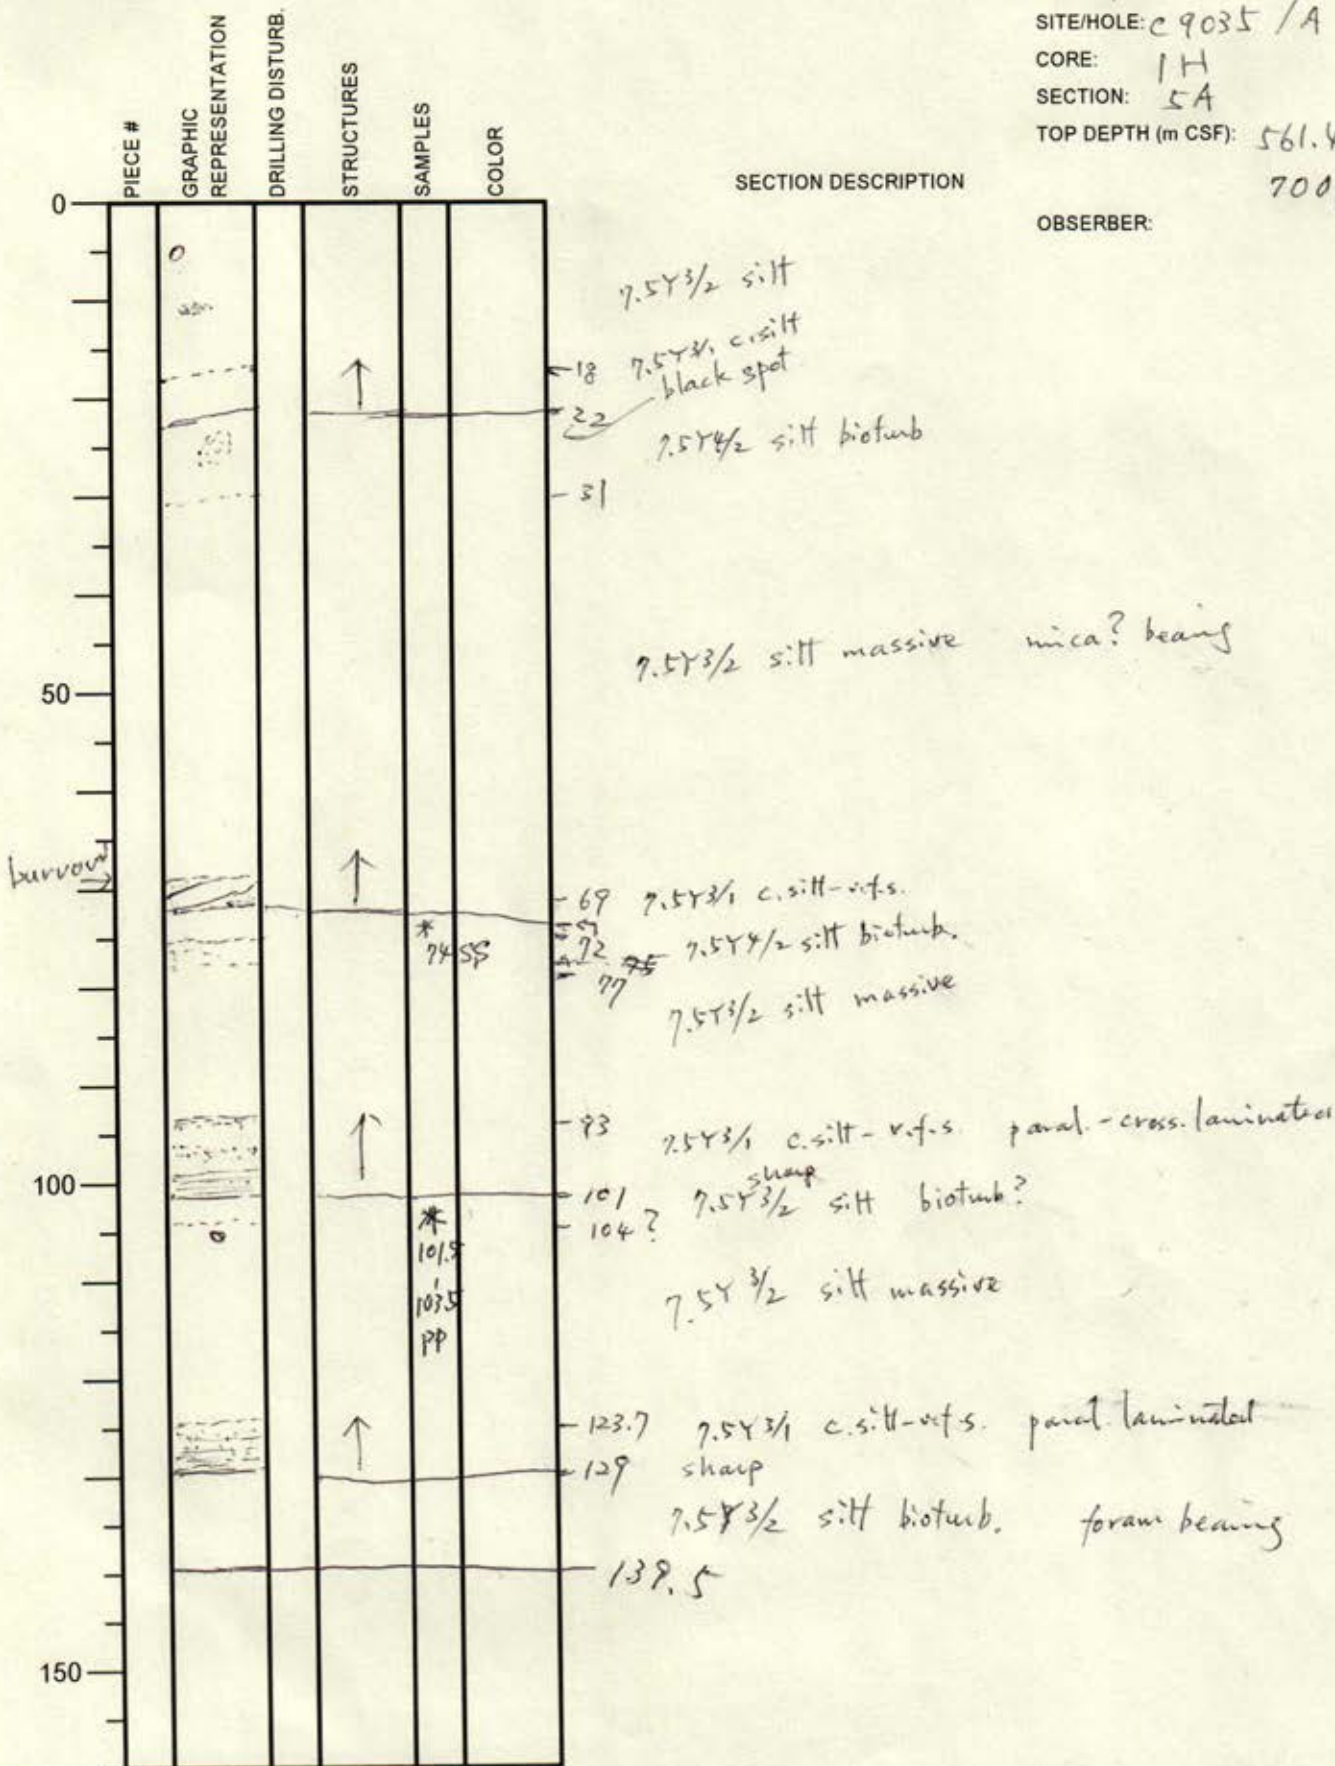 SITE/HOLE: C9035 / A
CORE: 1H
SECTION: 5A
TOP DEPTH (m CSF): 561.4
700
OBSERBER:
PIECE #
GRAPHIC REPRESENTATION
DRILLING DISTURB.
STRUCTURES
SAMPLES
COLOR
SECTION DESCRIPTION
0
7.5Y3/2 silt
18 7.5Y3/1 c.silt
black spot
22
7.5Y4/2 silt bioturb
31
7.5Y3/2 silt massive mica? bearing
50
burrow
69 7.5Y3/1 c.silt-v.f.s.
* 74 SS
72 7.5Y4/2 silt bioturb.
77
7.5Y3/2 silt massive
93 7.5Y3/1 c.silt-v.f.s. paral.-cross.laminated
sharp
100
101 7.5Y3/2 silt bioturb?
104?
*
103.5
PP
7.5Y 3/2 silt massive
123.7 7.5Y3/1 c.silt-v.f.s. paral. laminated
129 sharp
7.5Y3/2 silt bioturb. foram bearing
139.5
150